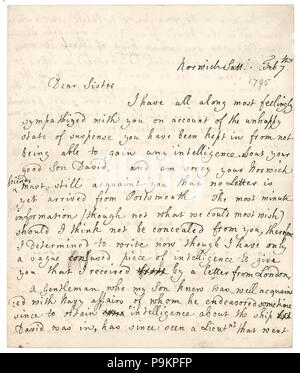 Norwich Satt.. Feb 7th
1795
Dear Sister
I have all along most feelingly
sympathized with you on account of the unhappy
state of suspense you have been kept in from not
being able to gain any intelligence about your
good Son David, and am sorry your Norwich
friends must still acquaint you that no Letter is
yet arrived from Portsmouth. The most minute
information (though not what we could most wish)
should I think not be concealed from you, therefore
I Determined to write now though I have only
a vague confused piece of intelligence to give
you that I received by a Letter from London,
a Gentleman who my Son knew was well acquain
ted with Navy affairs of whom he endeavored some time
since to obtain intelligence about the ship
David was in, has since seen a Lieut.nt that went
alamy
Image ID: P9KPFP
www.alamy.com